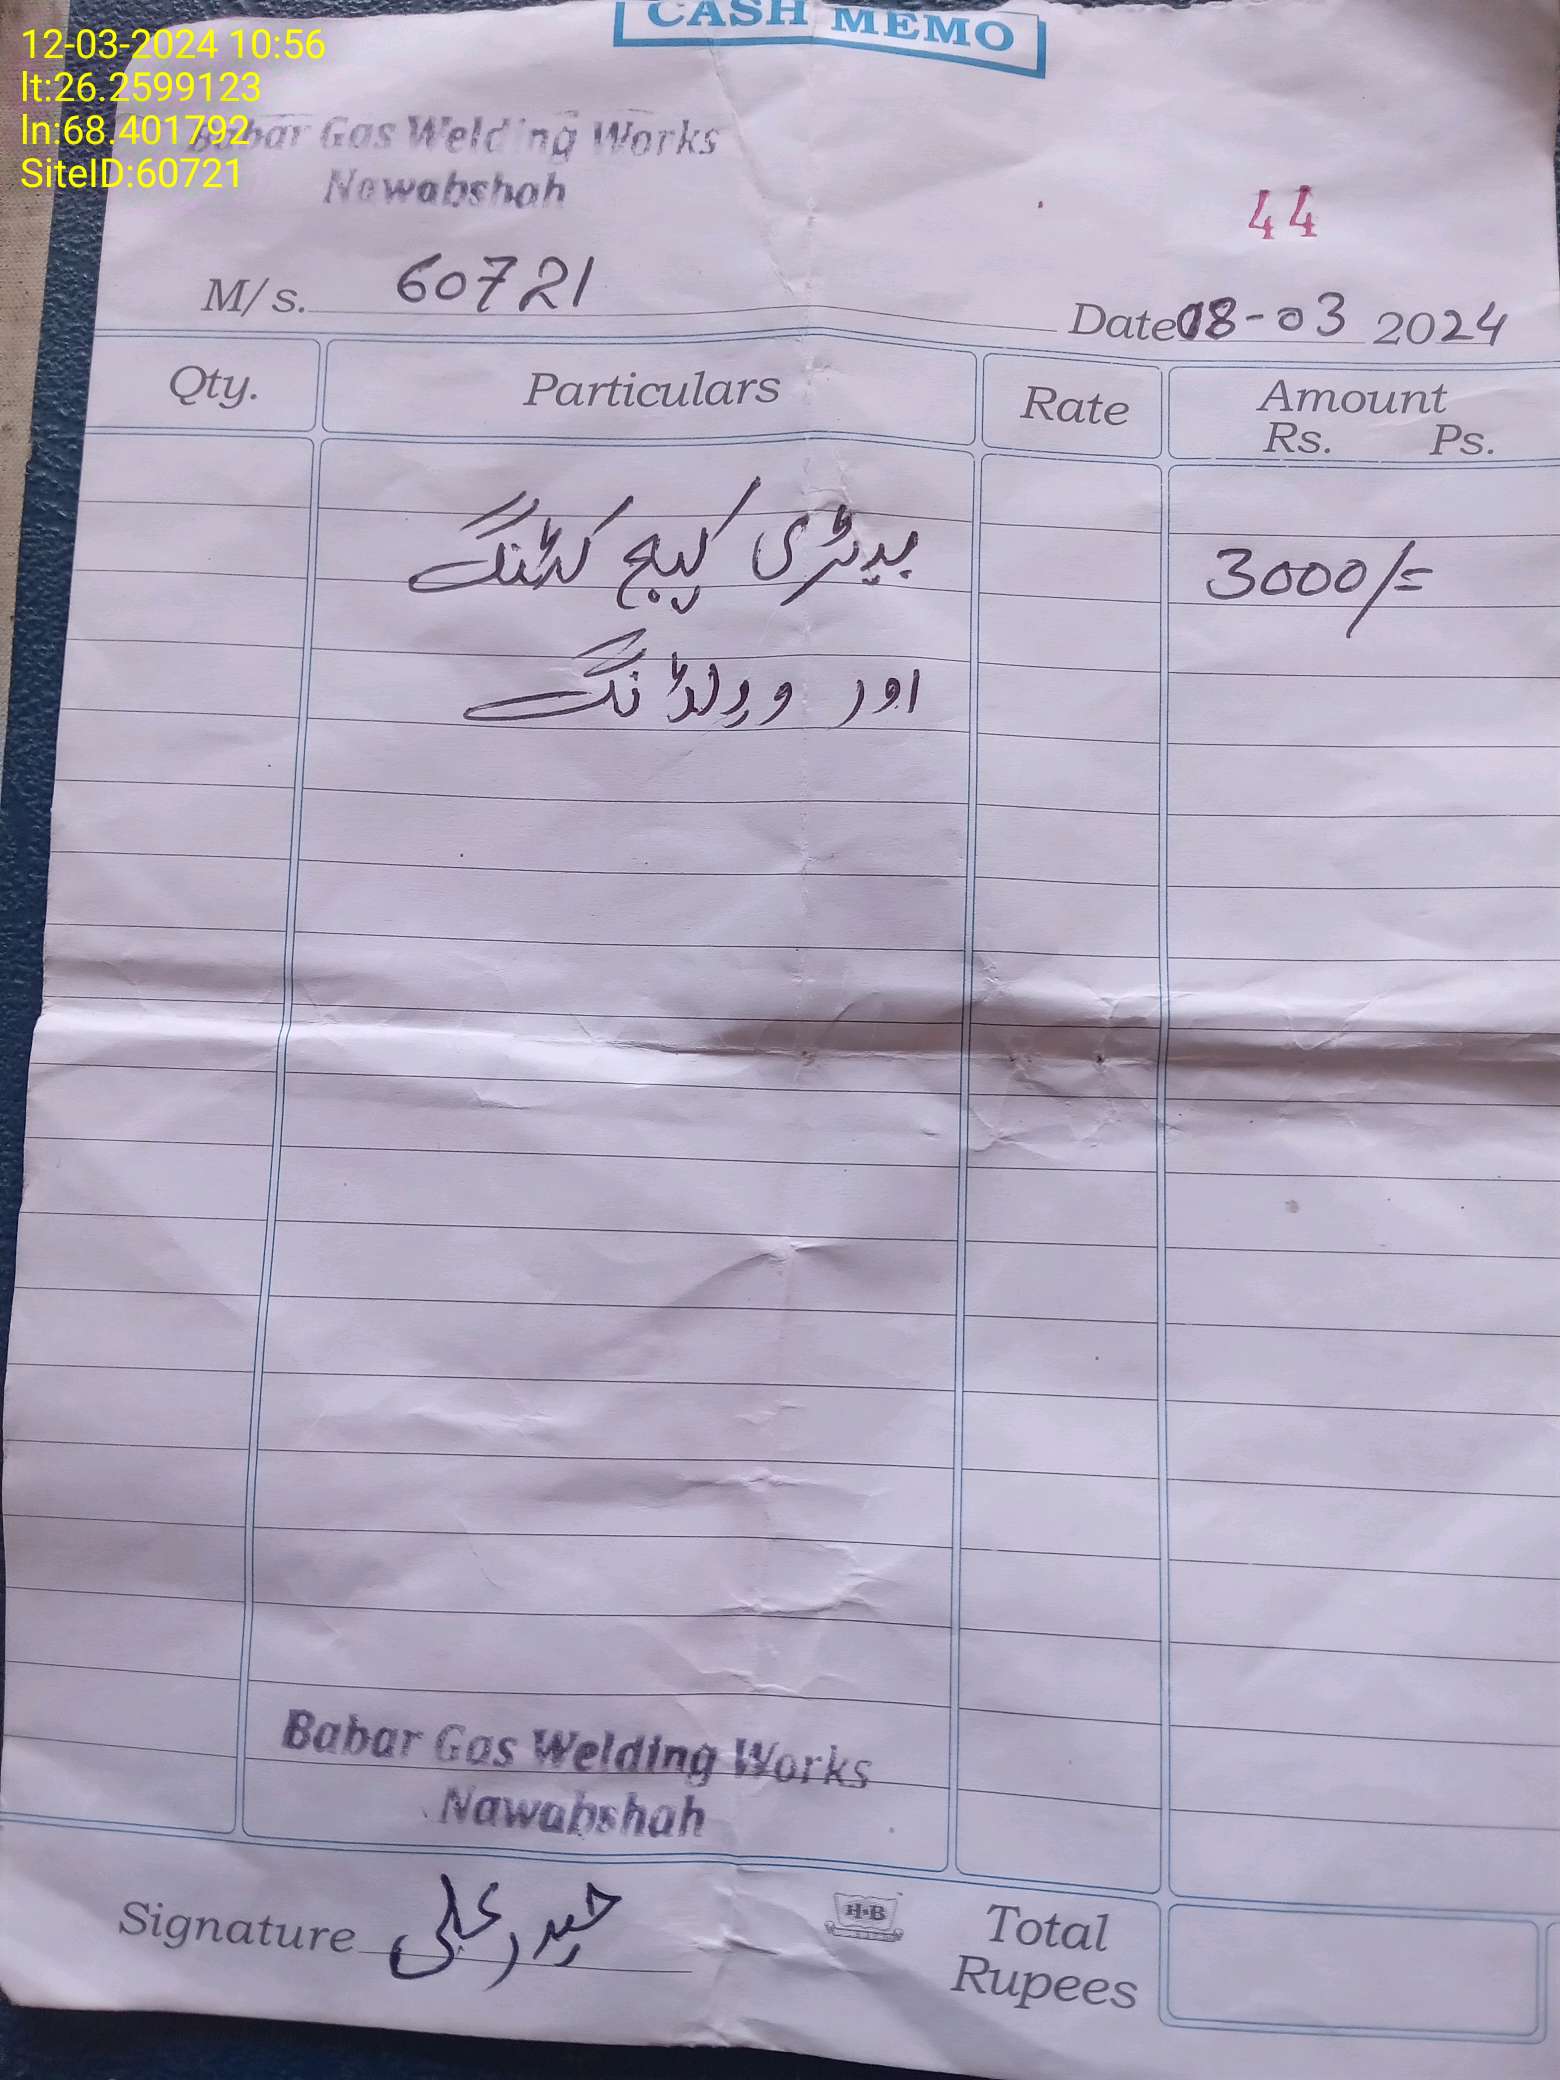 CASH MEMO
12-03-2024 10:56
lt:26.2599123
ln:68.401792
SiteID:60721
Babar Gas Welding Works
Nawabshah
44
M/s. 60721
Date 08-03 2024
Qty. Particulars Rate Amount
Rs. Ps.
بیٹری کیج کٹنگ 3000/=
اور ویلڈنگ
Babar Gas Welding Works
Nawabshah
Signature حیدر علی
H·B
Total
Rupees